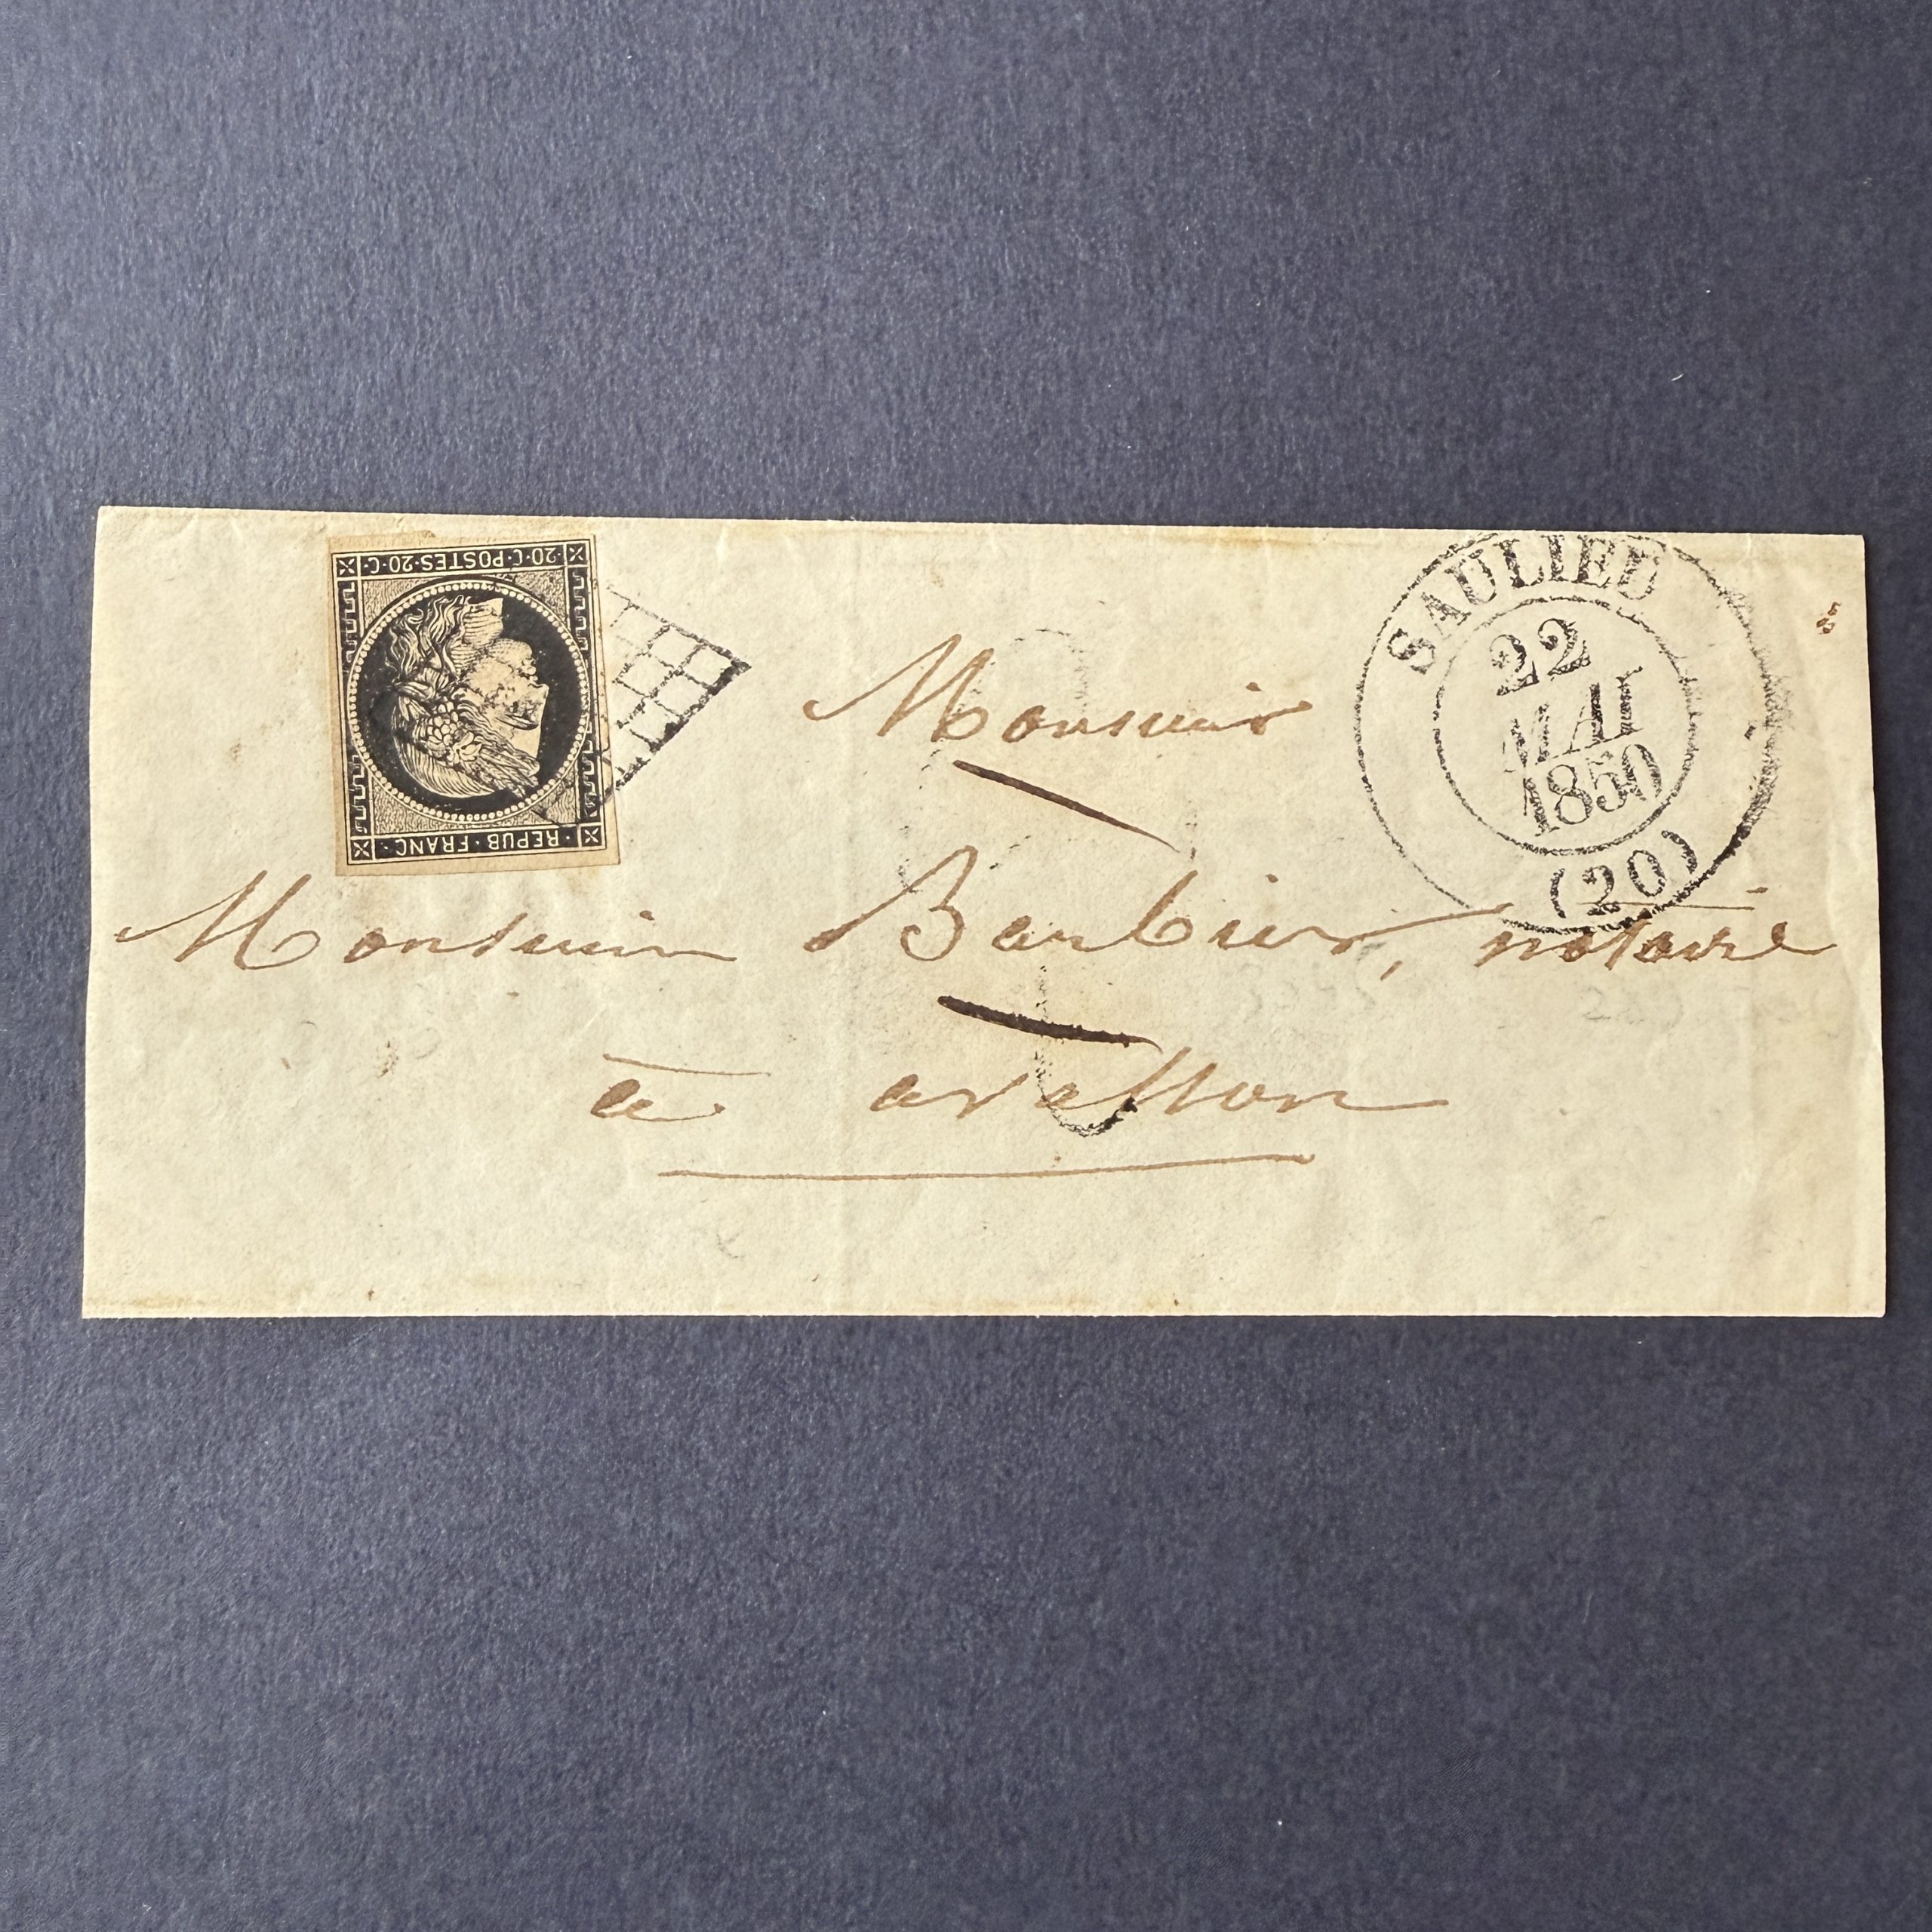 20·C·POSTES·20·C·
REPUB·FRANC·
SAULIEU
22
MAI
1850
(20)
Monsieur
Monsieur Barbier, notaire
à avallon